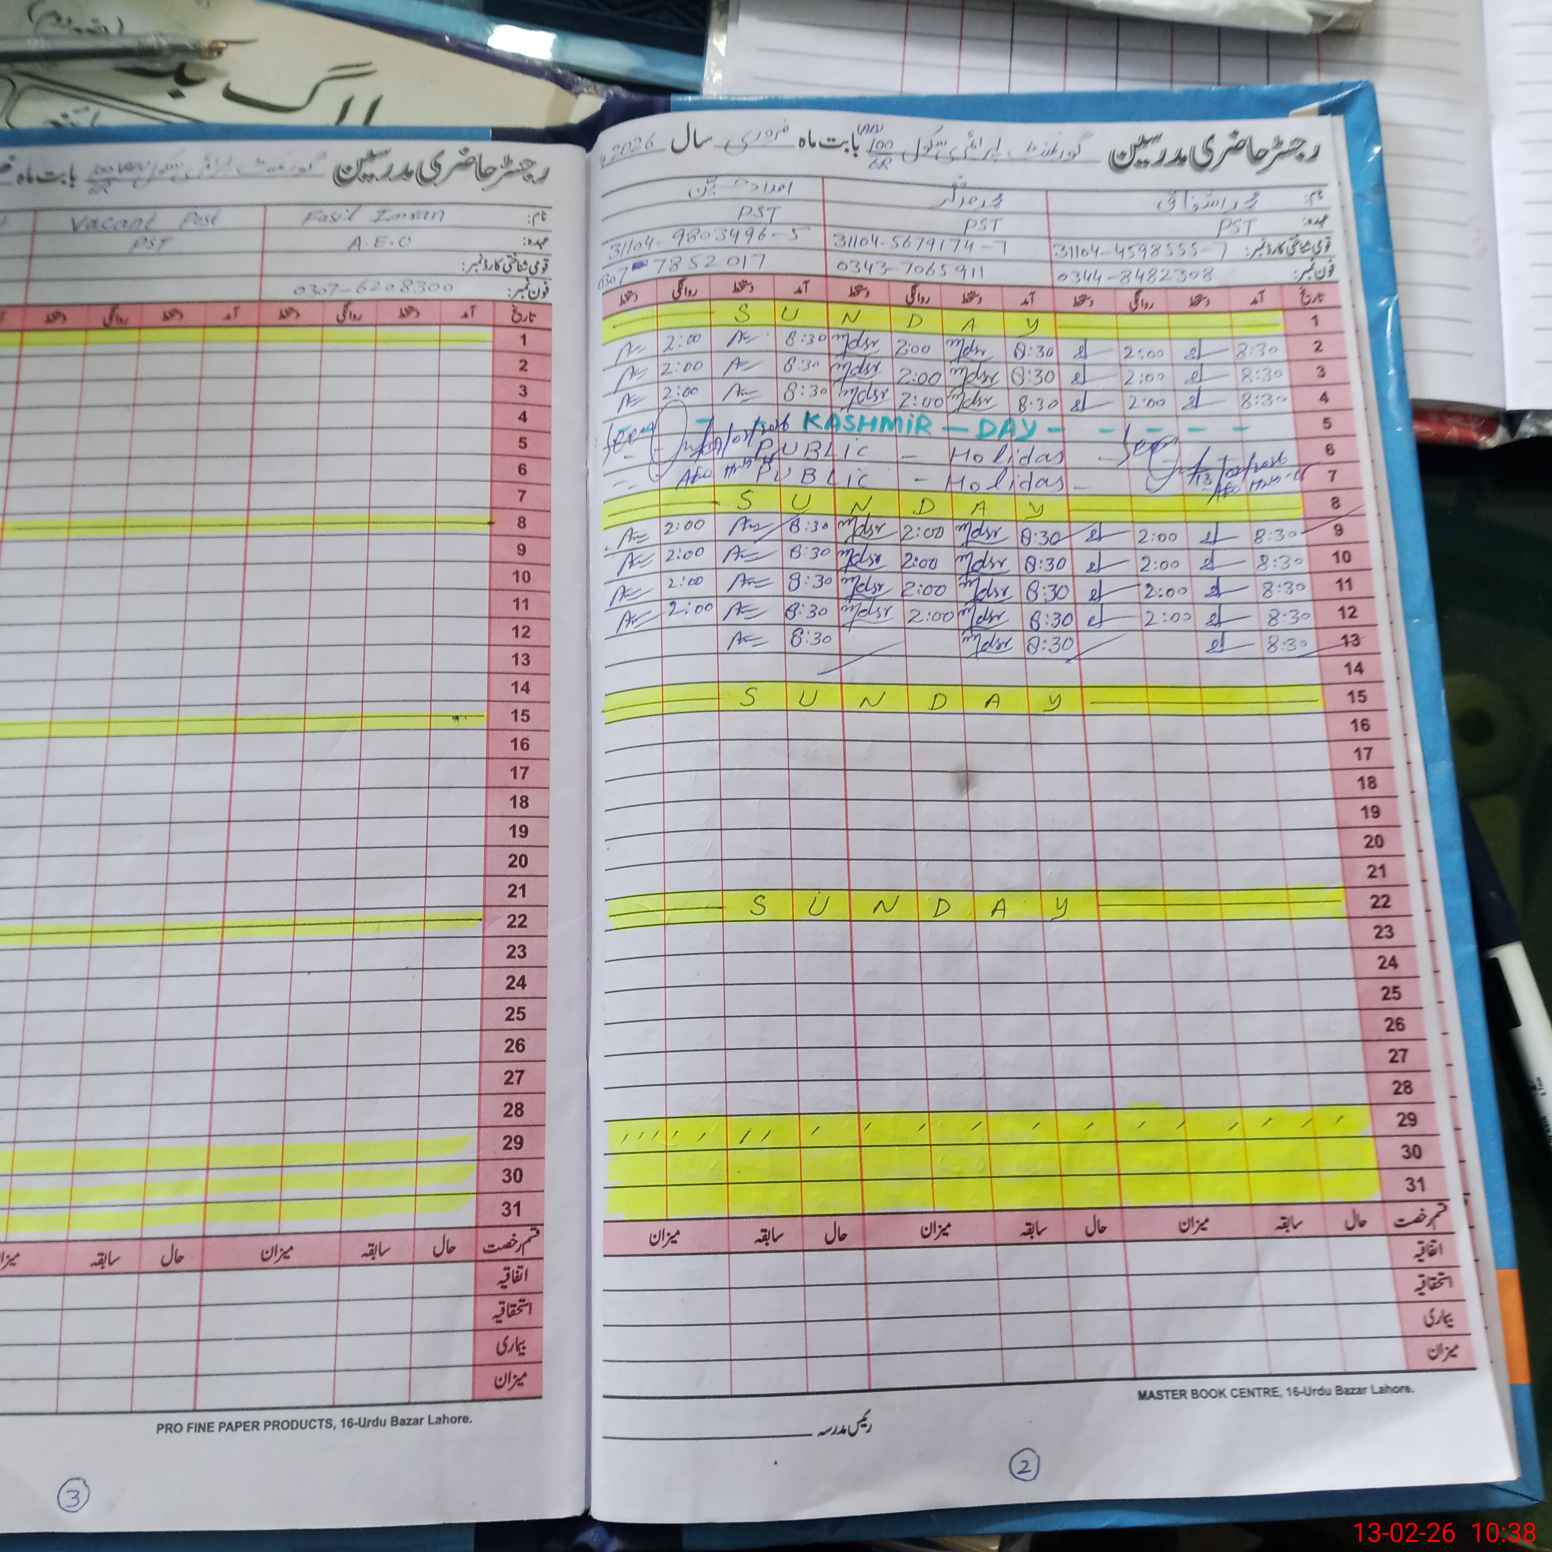 رجسٹر حاضری مدرسین گورنمنٹ پرائمری سکول 100 6R بابت ماہ فروری سال 2026
نام: محمد اشفاق
امداد حسین
عہدہ: PST PST PST
قومی شناختی کارڈ نمبر: 31104-4598555-7 31104-5679174-7 31104-9803496-5
فون نمبر: 0344-8482308 0343-7065911 0307-7852017
تاریخ آمد دستخط روانگی دستخط آمد دستخط روانگی دستخط آمد دستخط روانگی دستخط
1 SUNDAY
2 8:30 2:00 8:30 2:00 8:30 2:00
3 8:30 2:00 8:30 2:00 8:30 2:00
4 8:30 2:00 8:30 2:00 8:30 2:00
5 KASHMIR - DAY - - - - -
6 PUBLIC - Holidas
7 PUBLIC - Holidas -
8 SUNDAY
9 8:30 2:00 8:30 2:00 8:30 2:00
10 8:30 2:00 8:30 2:00 8:30 2:00
11 8:30 2:00 8:30 2:00 8:30 2:00
12 8:30 2:00 8:30 2:00 8:30 2:00
13 8:30 8:30 8:30
14
15 SUNDAY
16
17
18
19
20
21
22 SUNDAY
23
24
25
26
27
28
29
30
31
قسم رخصت حال سابقہ میزان حال سابقہ میزان حال سابقہ میزان
اتفاقیہ
استحقاقیہ
بیماری
میزان
MASTER BOOK CENTRE, 16-Urdu Bazar Lahore.
رئیس مدرسہ
2
رجسٹر حاضری مدرسین گورنمنٹ پرائمری سکول بابت ماہ
نام: Fasil Imran Vacant Post
عہدہ: A.E.O PST
قومی شناختی کارڈ نمبر:
فون نمبر: 0307-6208300
تاریخ آمد دستخط روانگی دستخط آمد دستخط روانگی دستخط
1
2
3
4
5
6
7
8
9
10
11
12
13
14
15
16
17
18
19
20
21
22
23
24
25
26
27
28
29
30
31
قسم رخصت حال سابقہ میزان حال سابقہ میزان
اتفاقیہ
استحقاقیہ
بیماری
میزان
PRO FINE PAPER PRODUCTS, 16-Urdu Bazar Lahore.
3
13-02-26 10:38